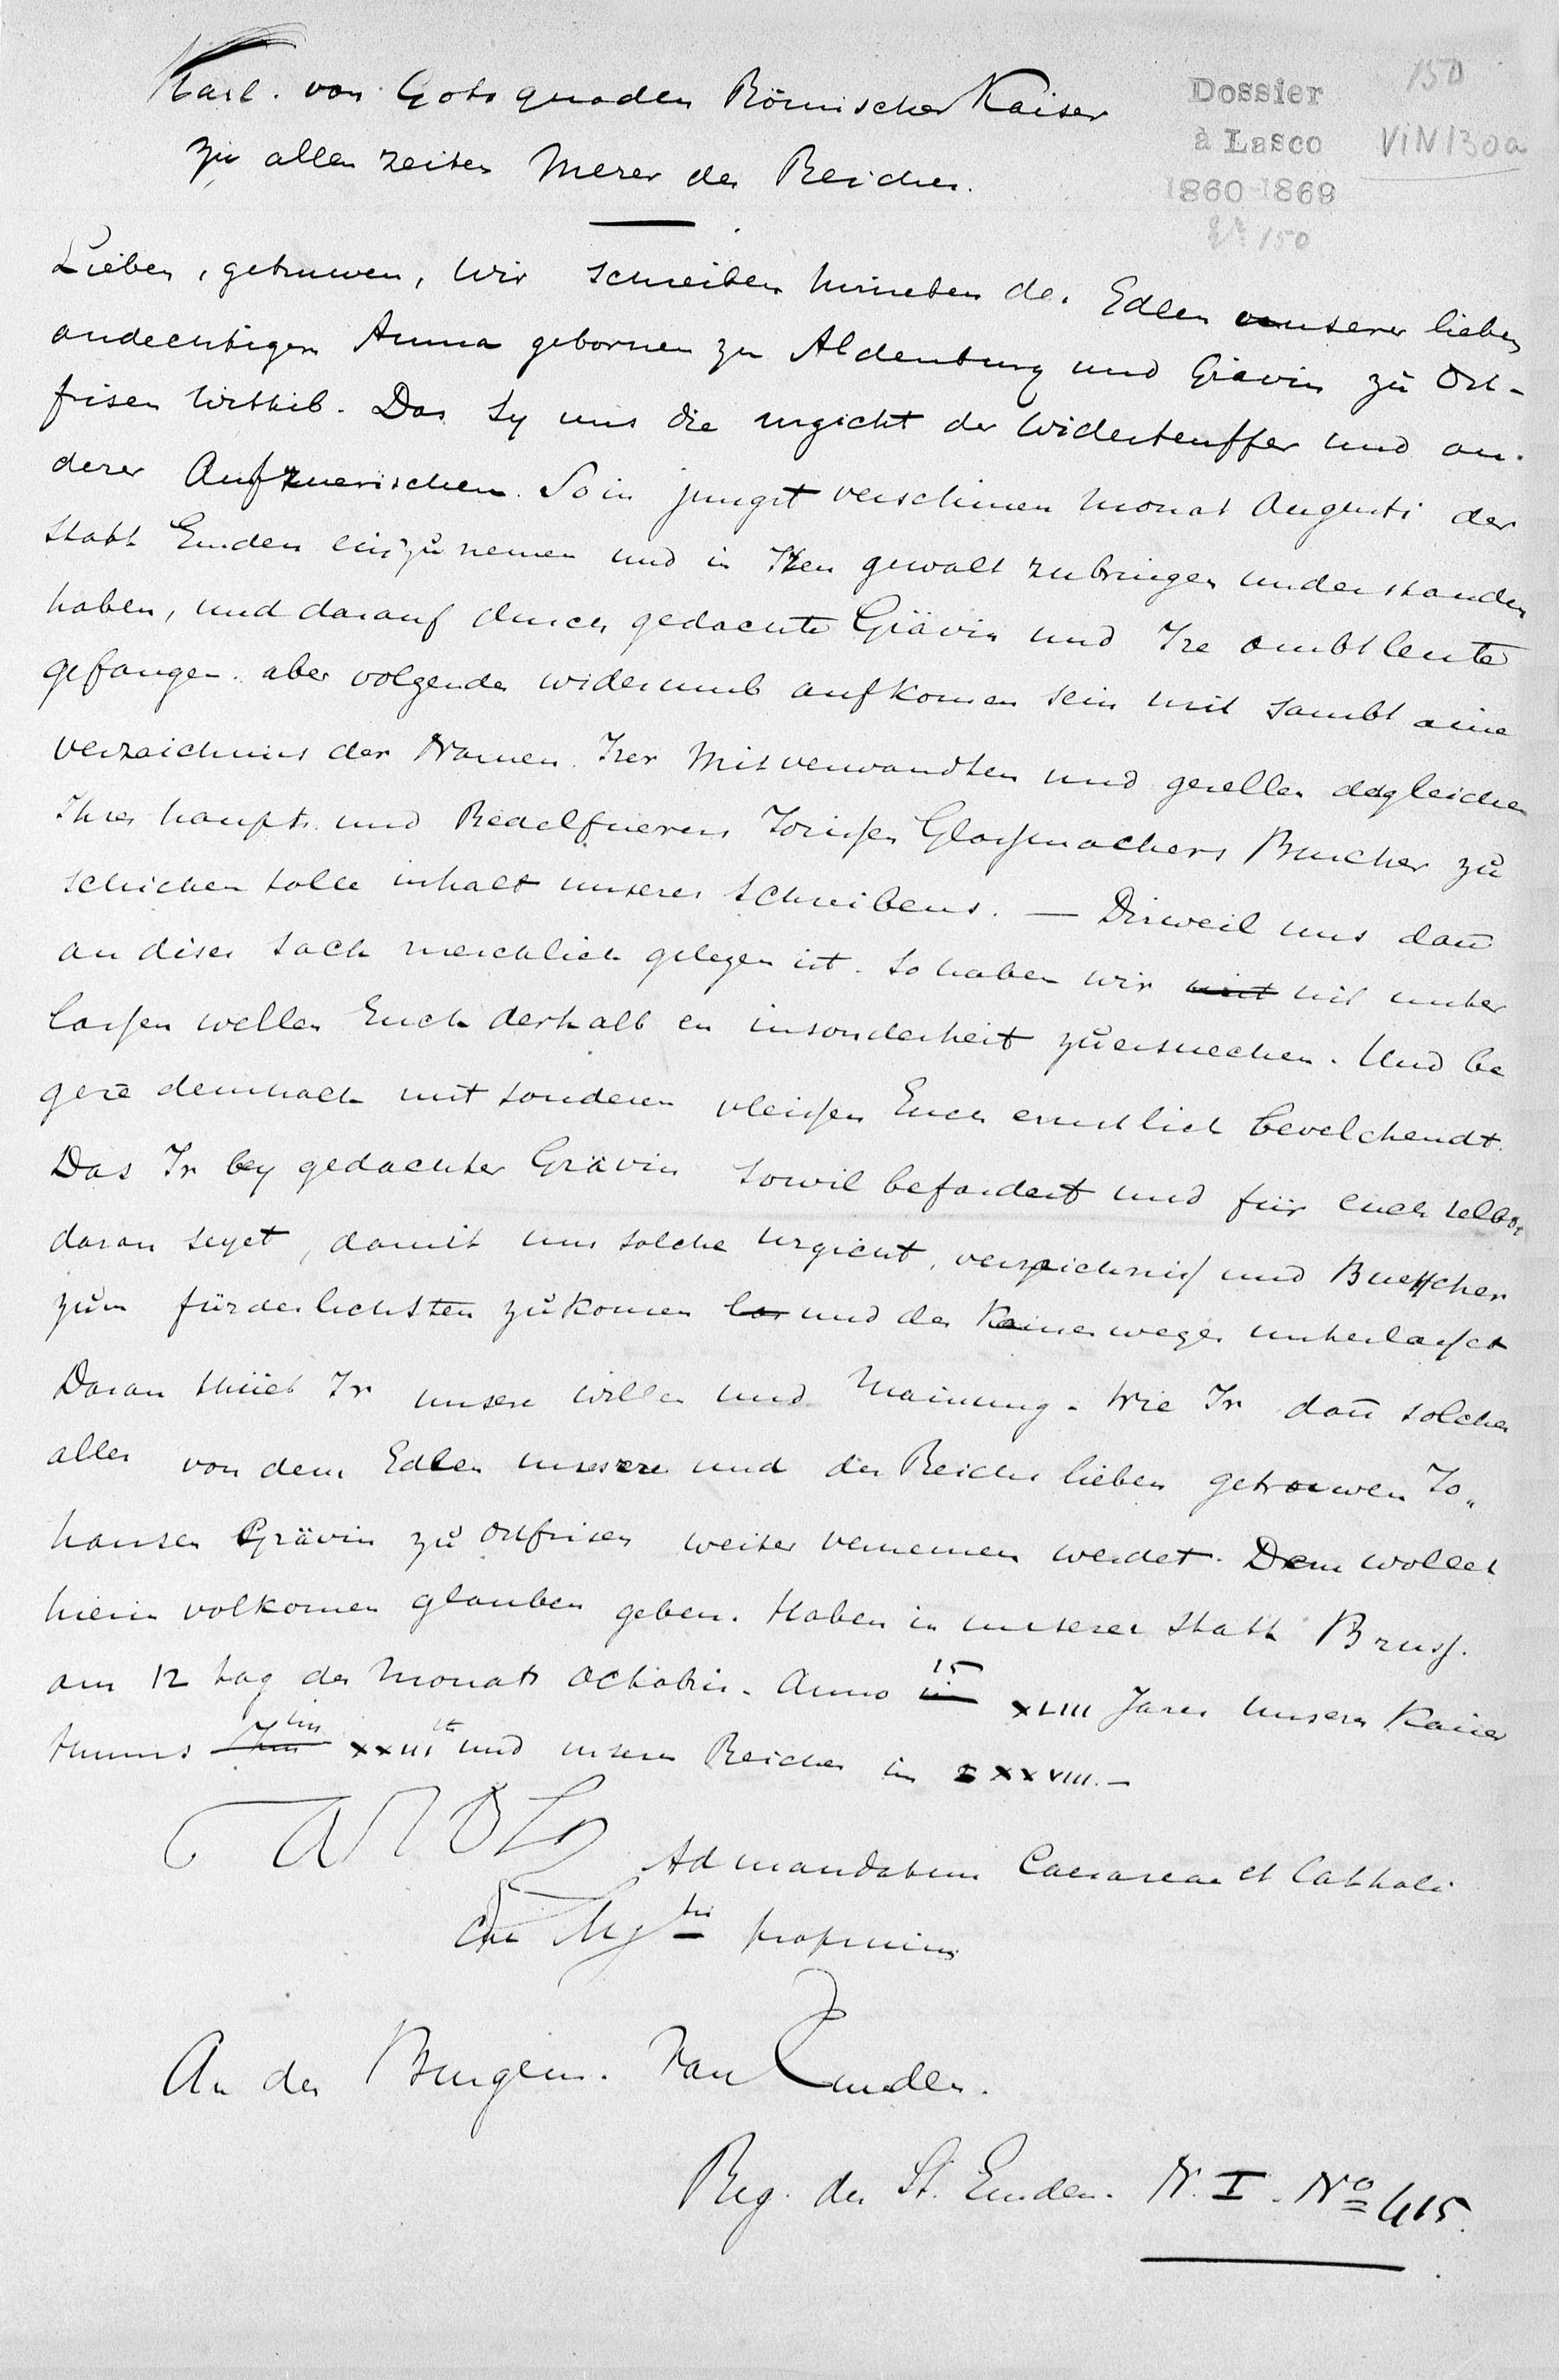 Karl. von Gots gnaden Römischer Kaiser
zu allen zeiten Merer des Reiches.
Dossier
à Lasco
1860-1869
No 150
150
VIN 130a
Lieben, getruwen, Wir schreiben hineben der Edlen unserer lieben
andechtigen Anna gebornen zu Aldenburg und Grävin zů Ost-
frisen Wittib. Das Sy uns die urgicht der Widerteuffer und an-
derer Aufruerischen. So in jungst verschinen Monat Augusti der
Statt Emden einzůnemen und in Iren gewalt zubringen understanden
haben, und darauf durch gedachte Grävin und Ire ambtleute
gefangen. aber volgends widerumb aufkomen sein mit sambt aine
verzaichnus der Namen. Irer Mitverwandten und gesellen desgleichen
Ihres haupts und Redelfuerers Jorissen Glassmachers Buecher zů
schicken solle inhalt unseres schreibens. — Dieweil uns dan̄
an diser sach mercklich gelegen ist. so haben wir nit unter
lassen wellen Euch derhalb en insonderheit zůersuechen. Und be
gere demnach mit sonderen vleissen Euch ernstlich bevelchendt.
Das Ir bey gedachter Grävin sovil befordert und für euch selbs
daran seyet, damit uns solche urgicht, verzaichniss und Buecher
zům fürderlichsten zůkomen und des kaines weges unterlasset
Daran thüet Ir unsere willen und Mainung. Wie Ir dan̄ solches
alles von dem Edlen unsere und des Reichs lieben getrouwen Jo„
hansen Grävin zů ostfrisen weiter vernemen werdet. Dem wollet
hierin volkomen glauben geben. Haben in unserer Statt Bruss.
am 12 tag des Monats Octobris. Anno 15 XLIII Jares Unsers Kaiser
thumbs XXIII und unsers Reiches im XXVIII.—
Carolus
Ad mandatum Caesareae et Catholi
cae Mgtis proprium
An der Burgem. van Emden.
Reg. der St. Emden. N. I. No 415.